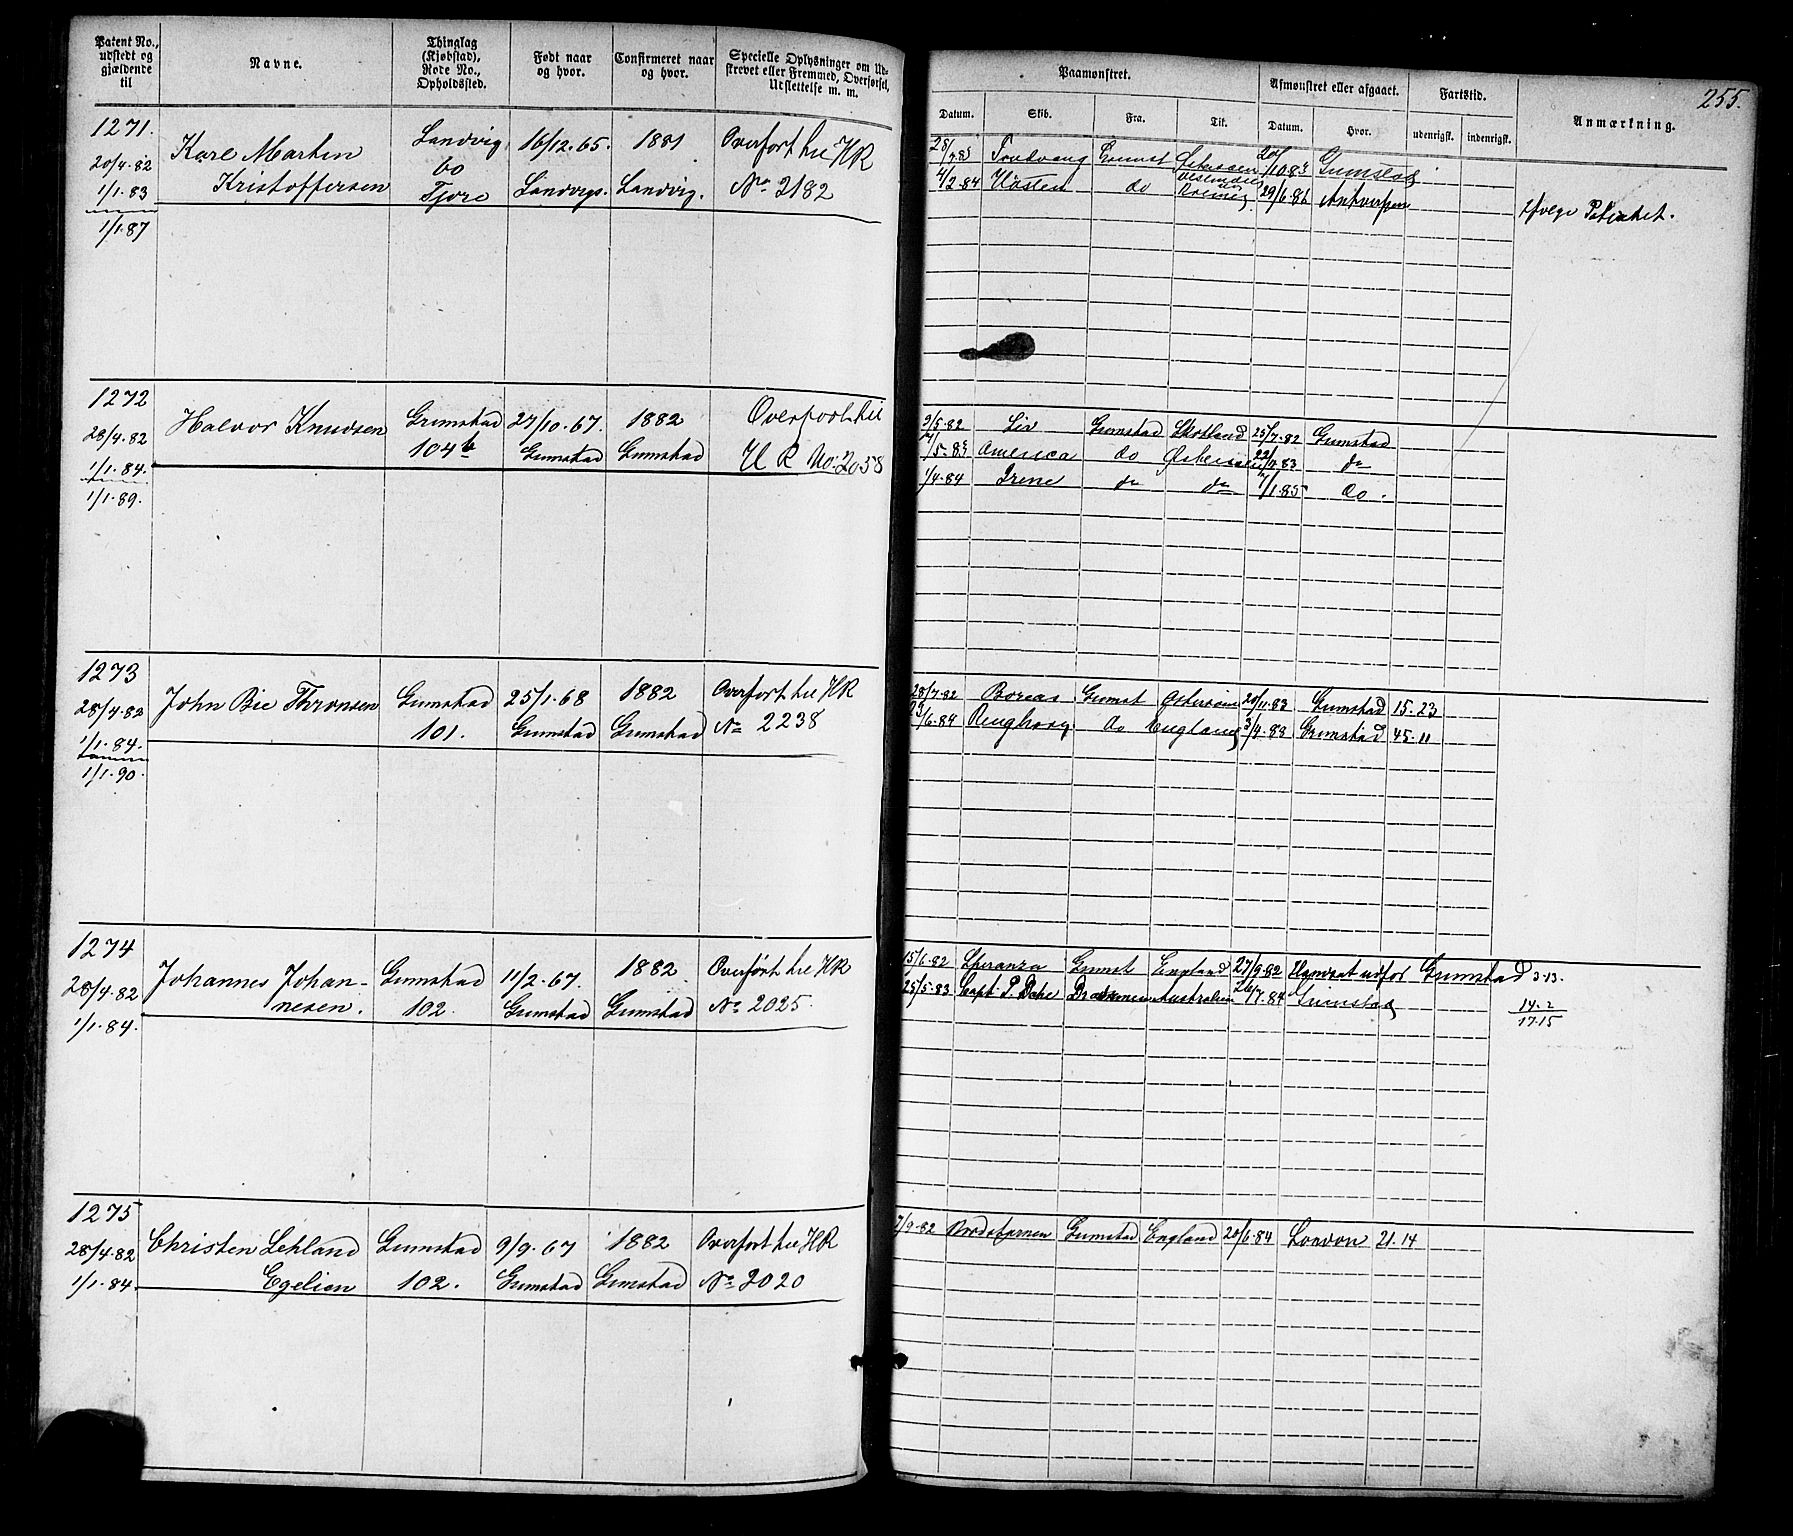 Patent No., udstedt og gjældende til
Navne.
Thinglag (Kjøbstad), Rode No., Opholdssted.
Født naar og hvor.
Confirmeret naar og hvor.
Specielle Oplysninger om Udskrevet eller Fremmed, Overførsel, Udslettelse m. m.
Paamønstret.
Afmønstret eller afgaaet.
Fartstid.
Anmærkning.
255.
Datum. Skib. Fra. Til. Datum. Hvor. udenrigst. indenrigst.
1271.
20/4.82
1/1.83
1/1.87
Karl Martin
Kristoffersen
Landvig
60
Fjore
16/12.65.
Landvigs.
1881
Landvig.
Overført til HR
No 2182
Grimstad
4/2.84 do 29/6.86 Antwerpen
ifølge Patentet.
1272
28/4.82
1/1.84.
1/1.89.
Halvor Knudsen
Grimstad
104b
27/10.67.
Grimstad
1882
Grimstad
Overført til
HR No. 2058
3/5.82 Liv Grimstad Skotland 25/7.82 Grimstad
America do Østersøen do
1/4.84 Irene do do 7/1.85 do.
1273
28/4.82
1/1.84.
1/1.90.
John Bie Thronsen
Grimstad
101.
25/1.68
Grimstad
1882
Grimstad
Overført til HR
No 2238
28/7.82 Boreas Grimst Østersøen 20/11.83 Grimstad 15.23
do England 3/9.88 Grimstad 45.11
1274
28/4.82
1/1.84.
Johannes Johan-
nesen.
Grimstad
102.
11/2.67.
Grimstad
1882.
Grimstad
Overført til HR
No 2025.
15/6.82 Speranza Grimst England 27/9.82 Grimstad 3.13.
25/5.83 Capt. P. Dahl Drammen Australien 7.84 Grimstad
14.2
17.15
1275
28/4.82
1/1.84.
Christen Lehland
Egelien
Grimstad
102.
9/9.67
Grimstad
1882
Grimstad
Overført til HR
No 2020
7/9.82 Grimstad England 20/6.84 London 21.14